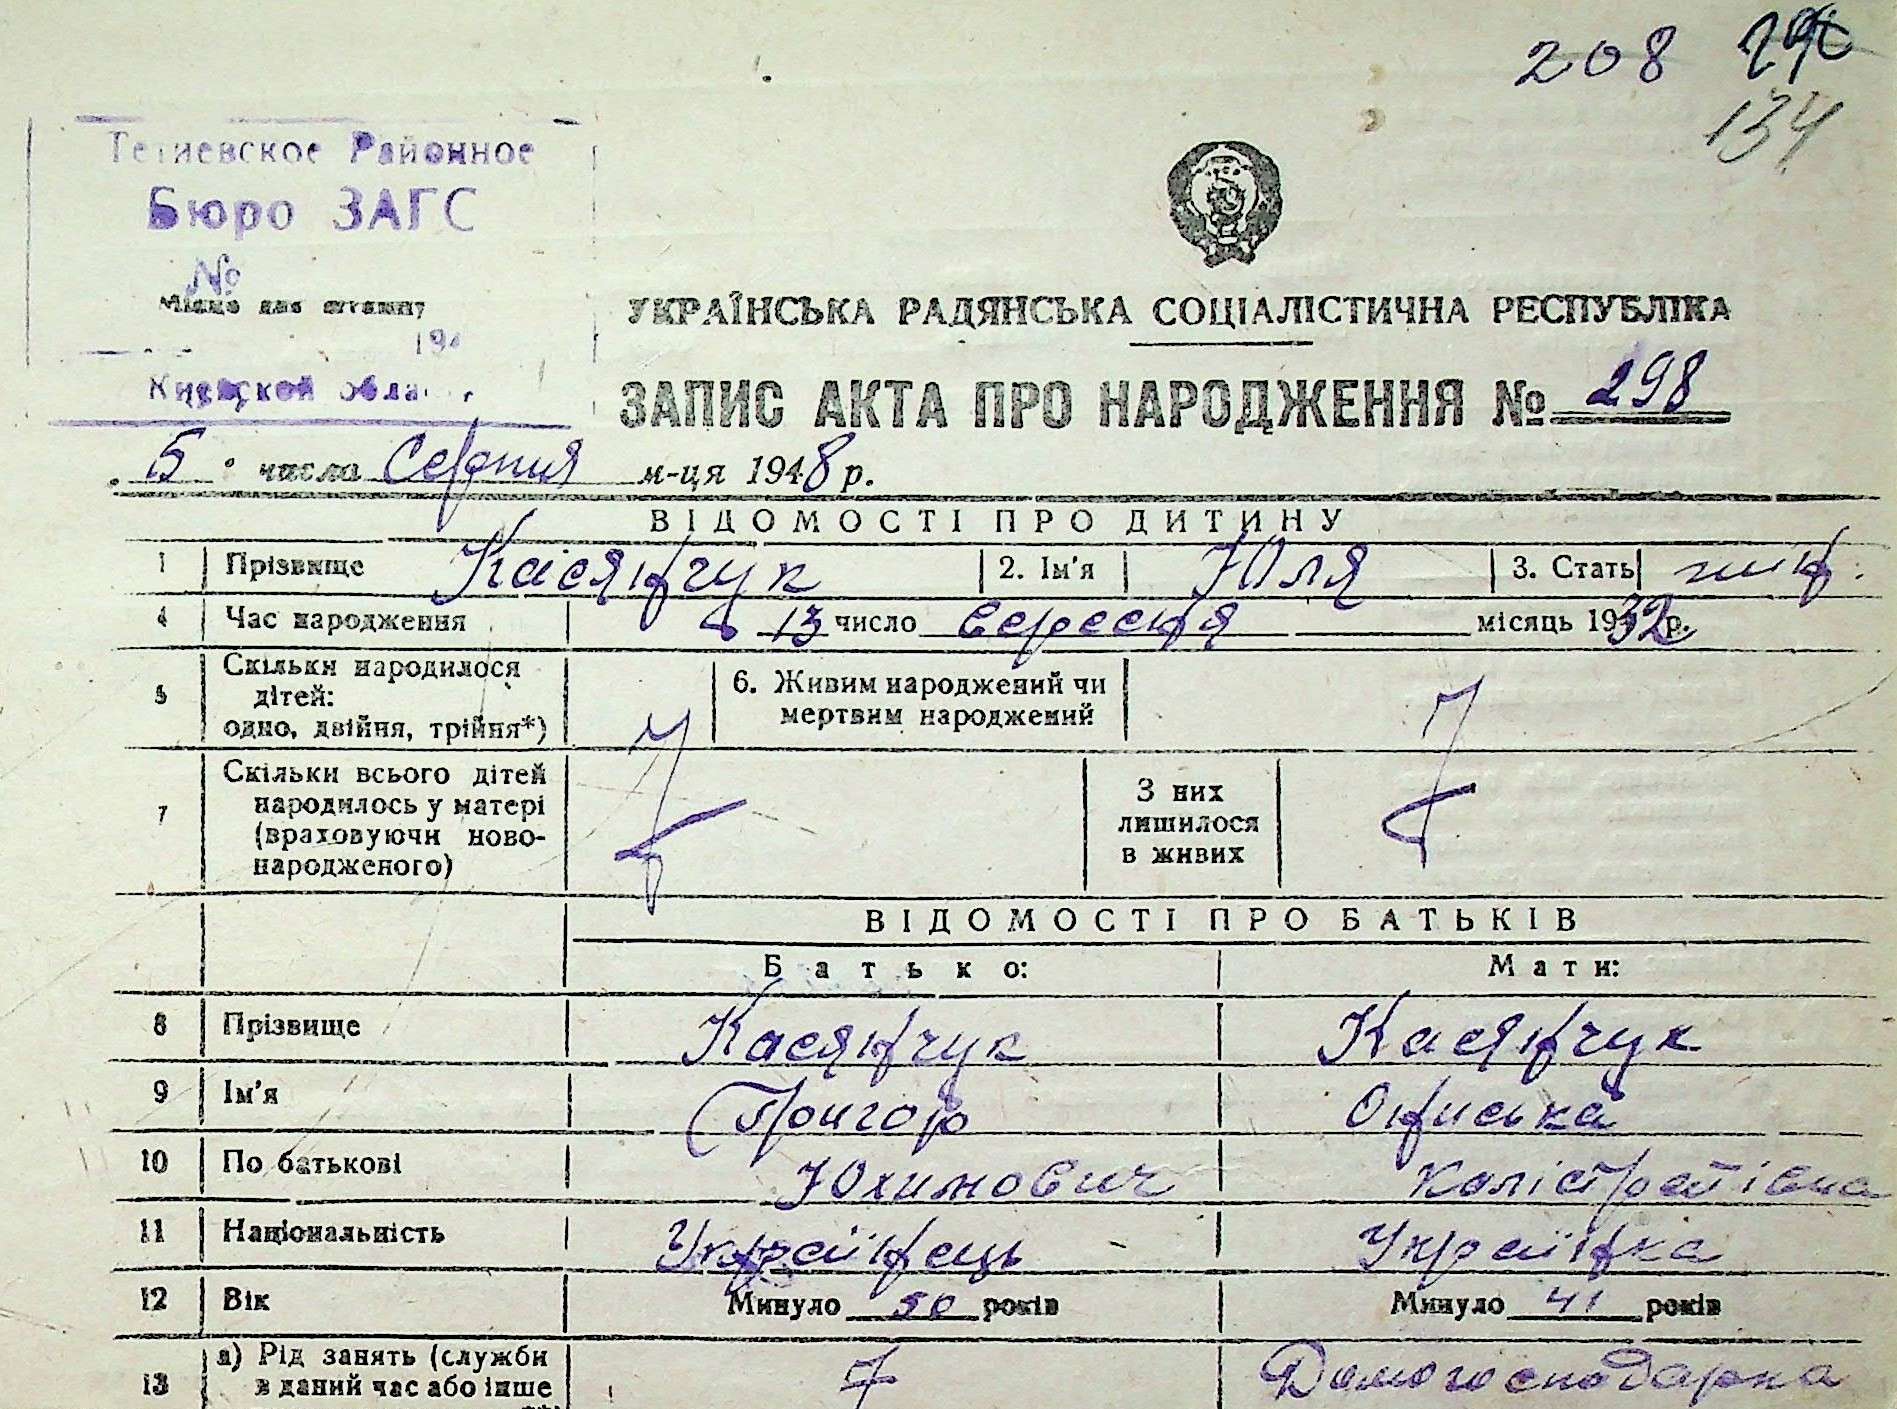 208
134
Тетиевское Районное
Бюро ЗАГС
№
Місце для штампу
194
Киевской област
УКРАЇНСЬКА РАДЯНСЬКА СОЦІАЛІСТИЧНА РЕСПУБЛІКА
ЗАПИС АКТА ПРО НАРОДЖЕННЯ № 298
5 числа Серпня м-ця 1948 р.
ВІДОМОСТІ ПРО ДИТИНУ
1 Прізвище Касянчук 2. Ім'я Юля 3. Стать жін.
4 Час народження 13 число вересня місяць 1932 р.
5 Скільки народилося дітей: одно, двійня, трійня*) 6. Живим народжений чи мертвим народжений
7 Скільки всього дітей народилось у матері (враховуючи новонародженого) З них лишилося в живих
ВІДОМОСТІ ПРО БАТЬКІВ
Батько: Мати:
8 Прізвище Касянчук Касянчук
9 Ім'я Григор Ониська
10 По батькові Юхимович Калістратівна
11 Національність Українець Українка
12 Вік Минуло 50 років Минуло 41 років
13 а) Рід занять (служби в даний час або інше Домогосподарка